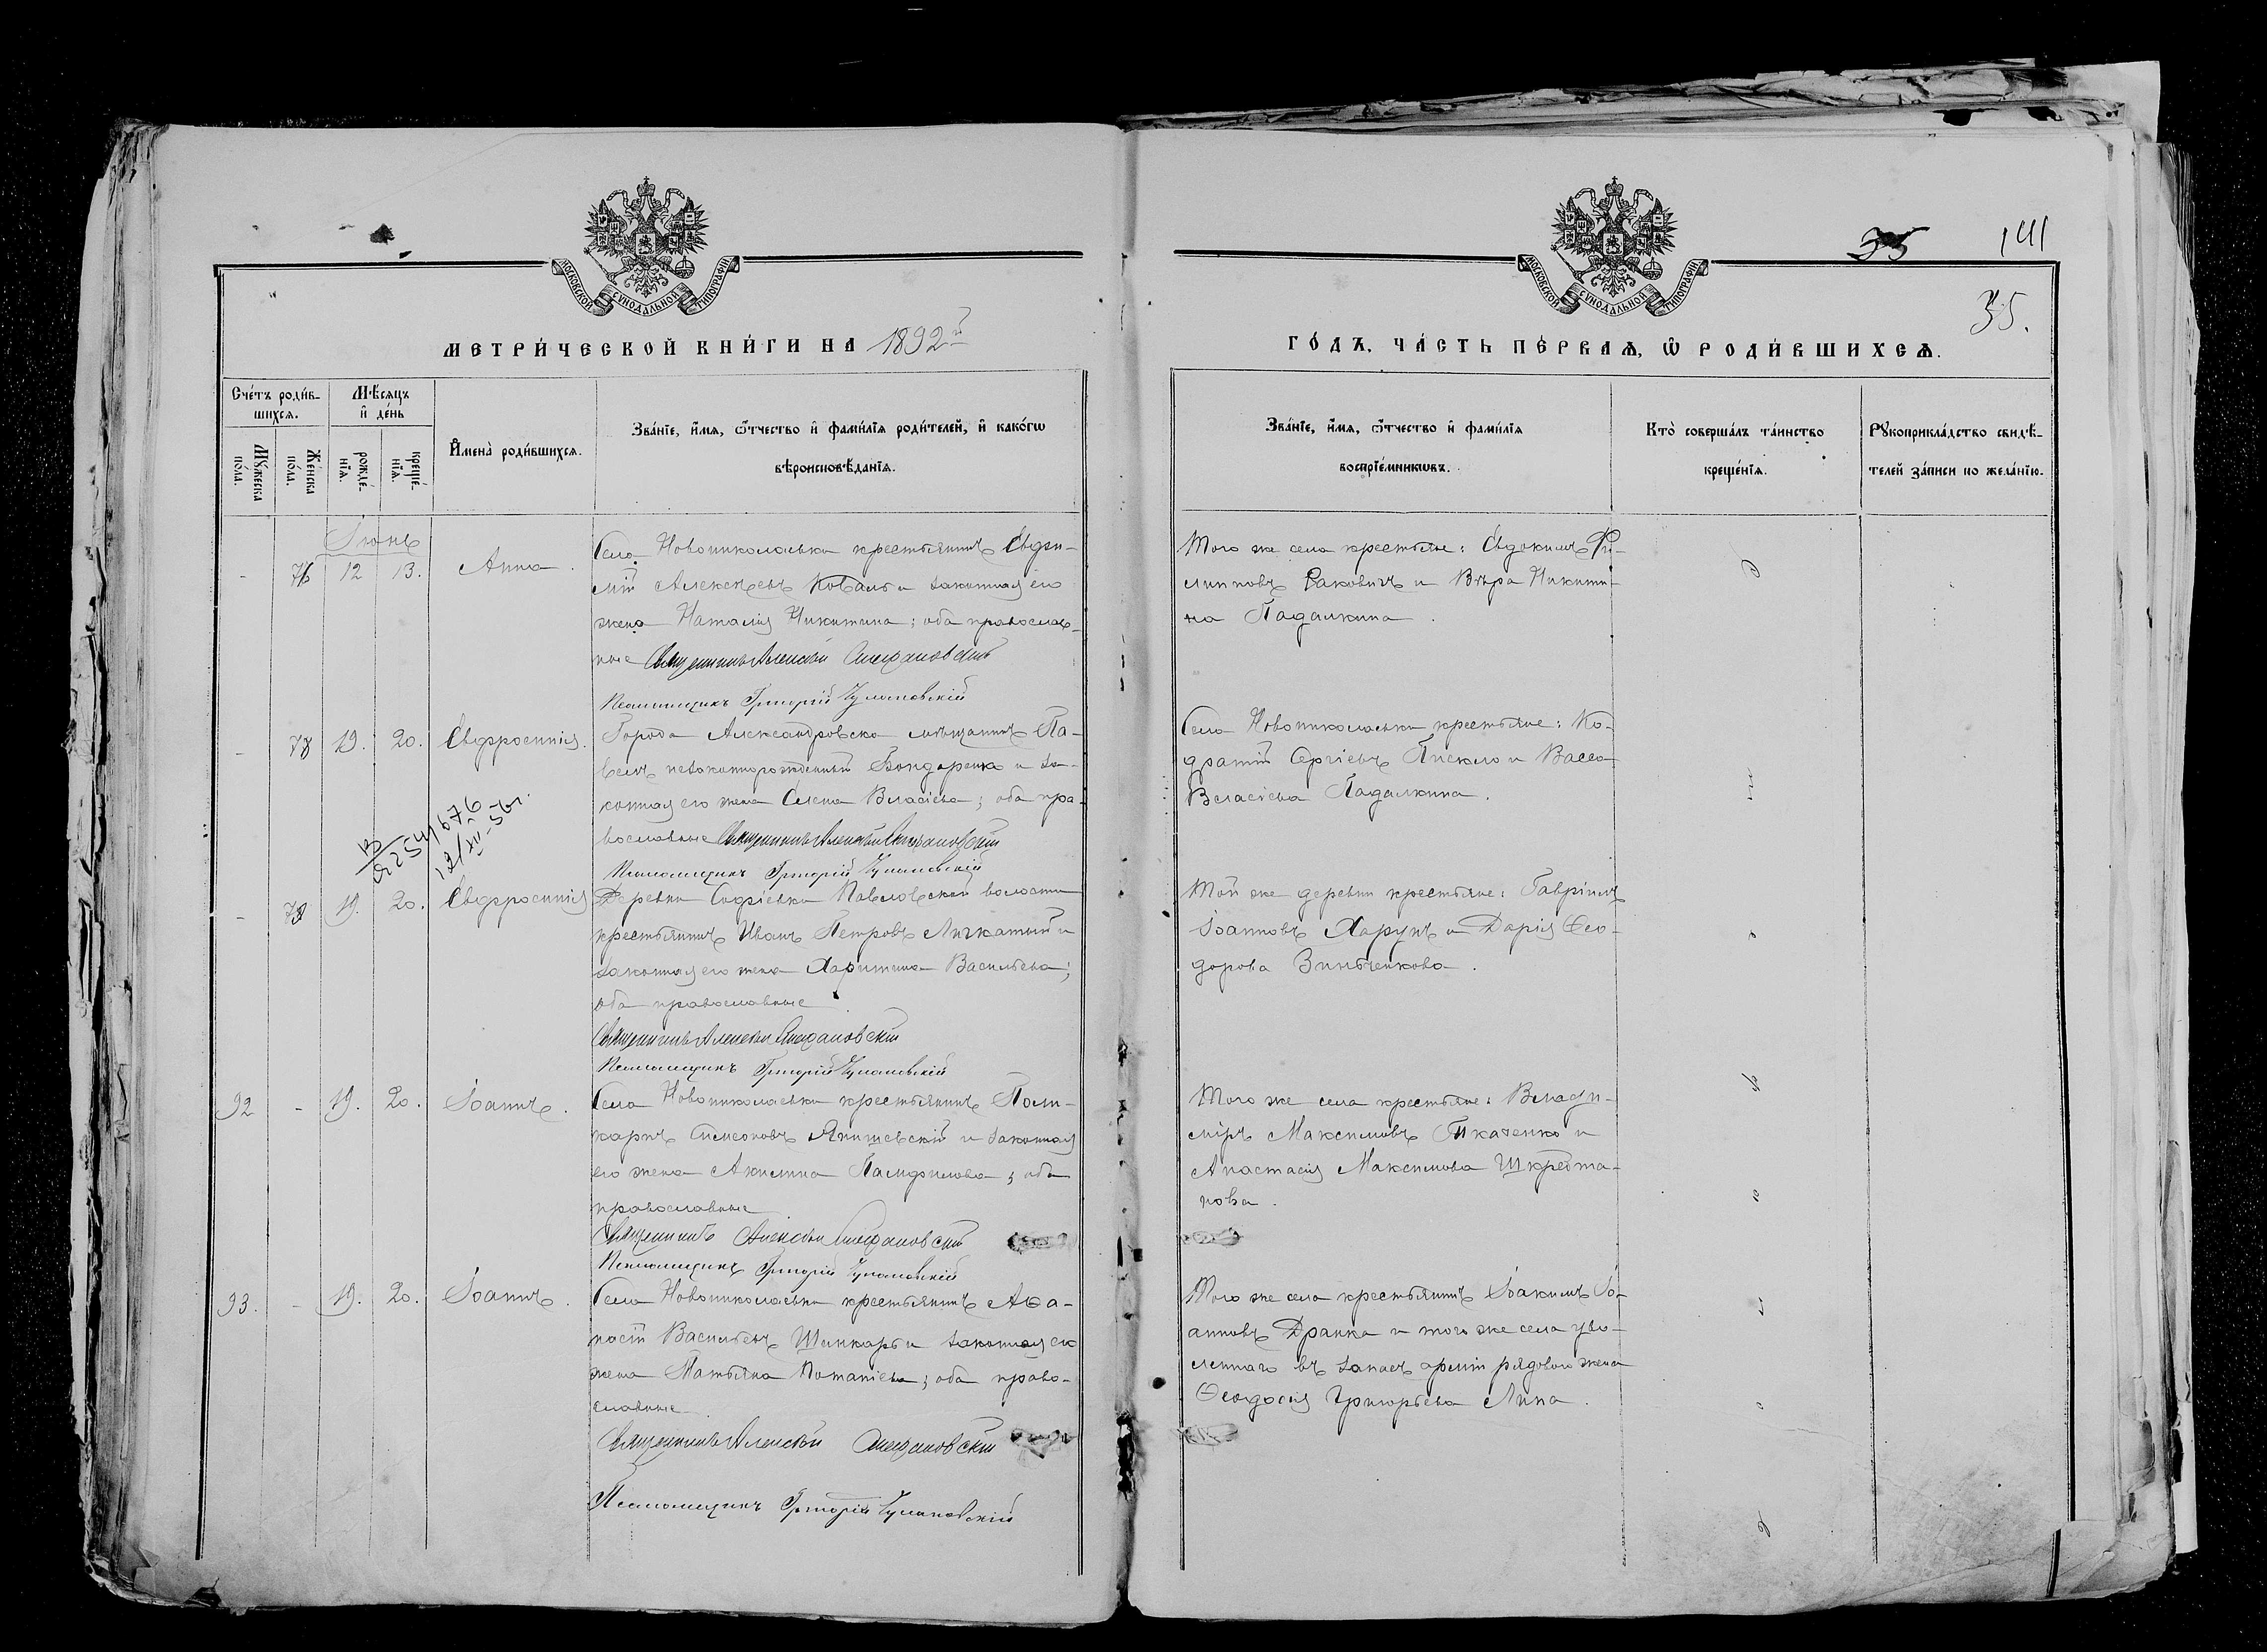 МОСКОВСКОЙ СУНОДАЛЬНОЙ ТИПОГРАФІИ
МЕТРИ́ЧЕСКОЙ КНИ́ГИ НА 1892й
Сче́тъ роди́в-
шихсѧ.
Мѣ́сѧцъ
и҆ де́нь
Мꙋ́жеска
по́ла.
Же́нска
по́ла.
рожде́-
нїѧ.
креще́-
нїѧ.
И҆мена̀ роди́вшихсѧ.
Зва́нїе, и҆́мѧ, ѻ҆́тчество и҆ фами́лїѧ роди́телей, и҆ како́гѡ
вѣроисповѣ́данїѧ.
Іюнь
- 76 12 13. Анна.
Села Новониколаевки крестьянинъ Евфи-
мій Алексѣевъ Коваль и законная его
жена Наталія Никитина; оба православ-
ные Священникъ Алексѣй Стефановскій
Псаломщикъ Григорій
- 78 19. 20. Евфросинія.
Города Александровска мѣщанинъ Па-
велъ незаконнорожденный Бондаренко и за-
конная его жена Елена Власіева; оба пра-
вославные Священникъ Алексѣй Стефановскій
Псаломщикъ Григорій
12/XII-56г.
- 19. 20. Евфросинія
Деревни Софіевки Павловской волости
крестьянинъ Иванъ Петровъ Личкатый и
законная его жена Харитина Васильева;
оба православные
Священникъ Алексѣй Стефановскій
Псаломщикъ Григорій
92 - 19. 20. Іоаннъ.
Села Новониколаевки крестьянинъ Поли-
карпъ Симеоновъ Янишевскій и законная
его жена Акилина Памфилова; оба
православные
Священникъ Алексѣй Стефановскій
Псаломщикъ Григорій
93. - 19. 20. Іоаннъ.
Села Новониколаевки крестьянинъ Аѳа-
насій Васильевъ Шинкарь и законная его
жена Татьяна Потапіева; оба право-
славные
Священникъ Алексѣй Стефановскій
Псаломщикъ Григорій
МОСКОВСКОЙ СУНОДАЛЬНОЙ ТИПОГРАФІИ
35 141
35.
ГО́ДЪ, ЧА́СТЬ ПЕ́РВАѦ, Ѡ҆ РОДИ́ВШИХСѦ.
Зва́нїе, и҆́мѧ, ѻ҆́тчество и҆ фами́лїѧ
воспрїе́мникѡвъ.
Кто̀ соверша́лъ та́инство
креще́нїѧ.
Рꙋкоприкла́дство свидѣ́-
телей за́писи по жела́нїю.
Того же села крестьяне: Евдокимъ Фи-
липповъ Ракович и Вѣра Никити-
на Падалкина.
Села Новониколаевки крестьяне: Ко-
дратій Сергіевъ Пискло и Васса
Власіева Падалкина.
Той же деревни крестьяне: Гавріилъ
Іоанновъ Харунъ и Дарія Ѳео-
дорова Зинченкова.
Того же села крестьяне: Влади-
міръ Максимовъ Ткаченко и
Анастасія Максимова Шкребта-
нова.
Того же села крестьянинъ Іоакимъ Іо-
анновъ Дранка и того же села уво-
леннаго въ запасъ арміи рядового жена
Ѳеодосія Григорьева Липа.